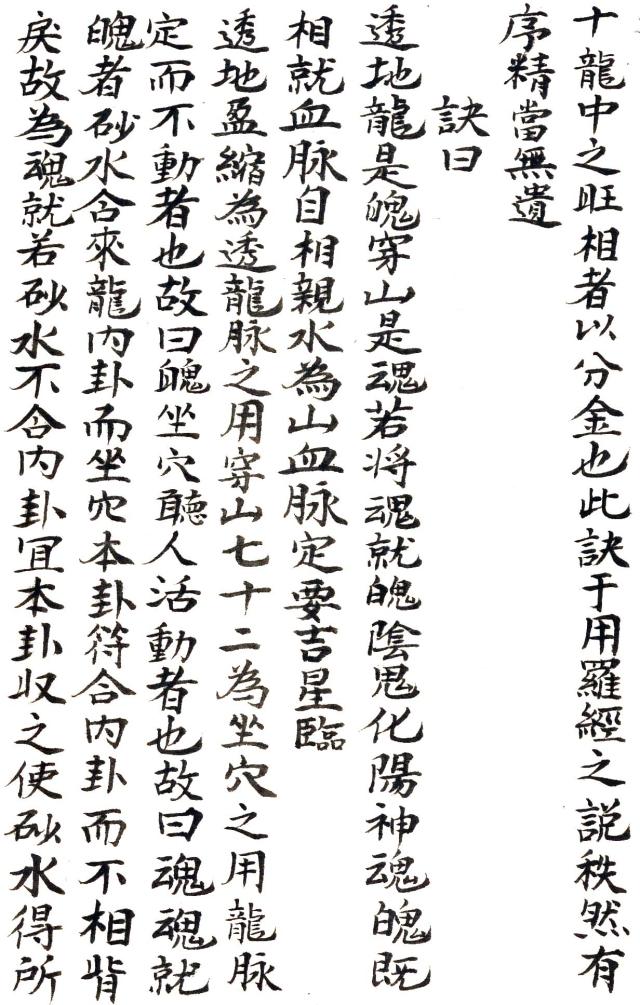 十龍中之旺相者以分金也此訣于用羅經之說秩然有
序精當無遺
訣曰
透地龍是魄穿山是魂若将魂就魄陰鬼化陽神魂魄既
相就血脉自相親水為山血脉定要吉星臨
透地盈縮為透龍脉之用穿山七十二為坐穴之用龍脉
定而不動者也故曰魄坐穴聽人活動者也故曰魂魂就
魄者砂水合來龍内卦而坐穴本卦符合内卦而不相背
戾故為魂就若砂水不合内卦宜本卦収之使砂水得所